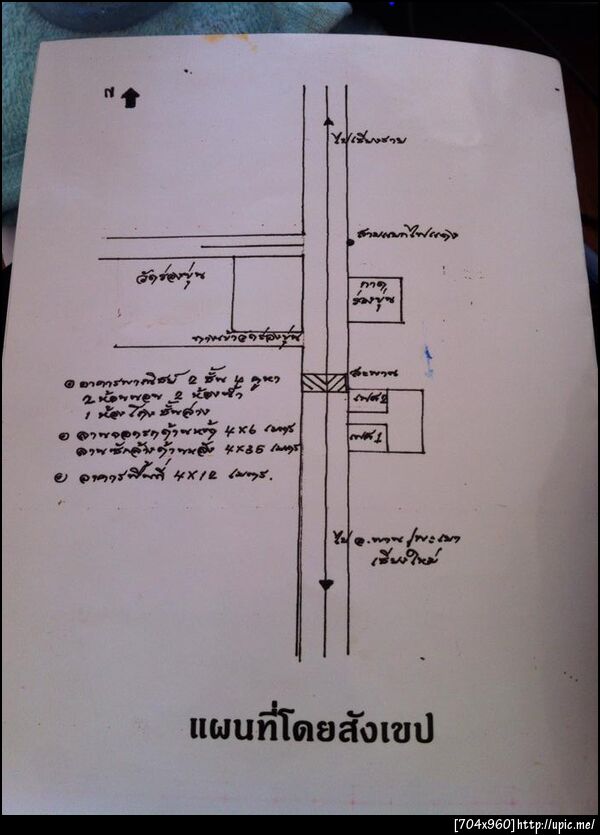 น
ไปเชียงราย
สามแยกไฟแดง
วัดร่องขุ่น
กาด
ร่องขุ่น
ทางเข้าวัดร่องขุ่น
สะพาน
๑ อาคารพาณิชย์ 2 ชั้น 4 คูหา
2 ห้องนอน 2 ห้องน้ำ
1 ห้องโถงชั้นล่าง
เฟส 2
๑ ลานจอดรถด้านหน้า 4x6 เมตร
เฟส 1
ลานซักล้างด้านหลัง 4x35 เมตร
๑ อาคารพื้นที่ 4x12 เมตร.
ไป อ.พาน/พะเยา
เชียงใหม่
แผนที่โดยสังเขป
[704x960]http://upic.me/